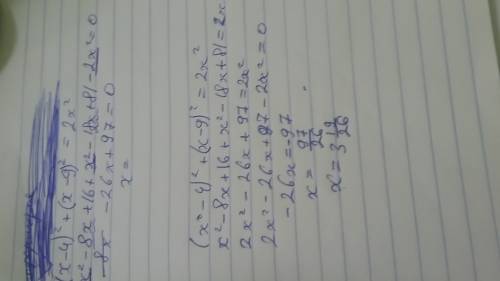 (x-4)² + (x-9)² = 2x²
x² - 8x + 16 + x² - 18x + 81 - 2x² = 0
-8x - 26x + 97 = 0
x =
(x² - 4)² + (x - 9)² = 2x²
x² - 8x + 16 + x² - 18x + 81 = 2x
2x² - 26x + 97 = 2x²
2x² - 26x + 97 - 2x² = 0
-26x = -97
x = 97/26
x = 3 19/26